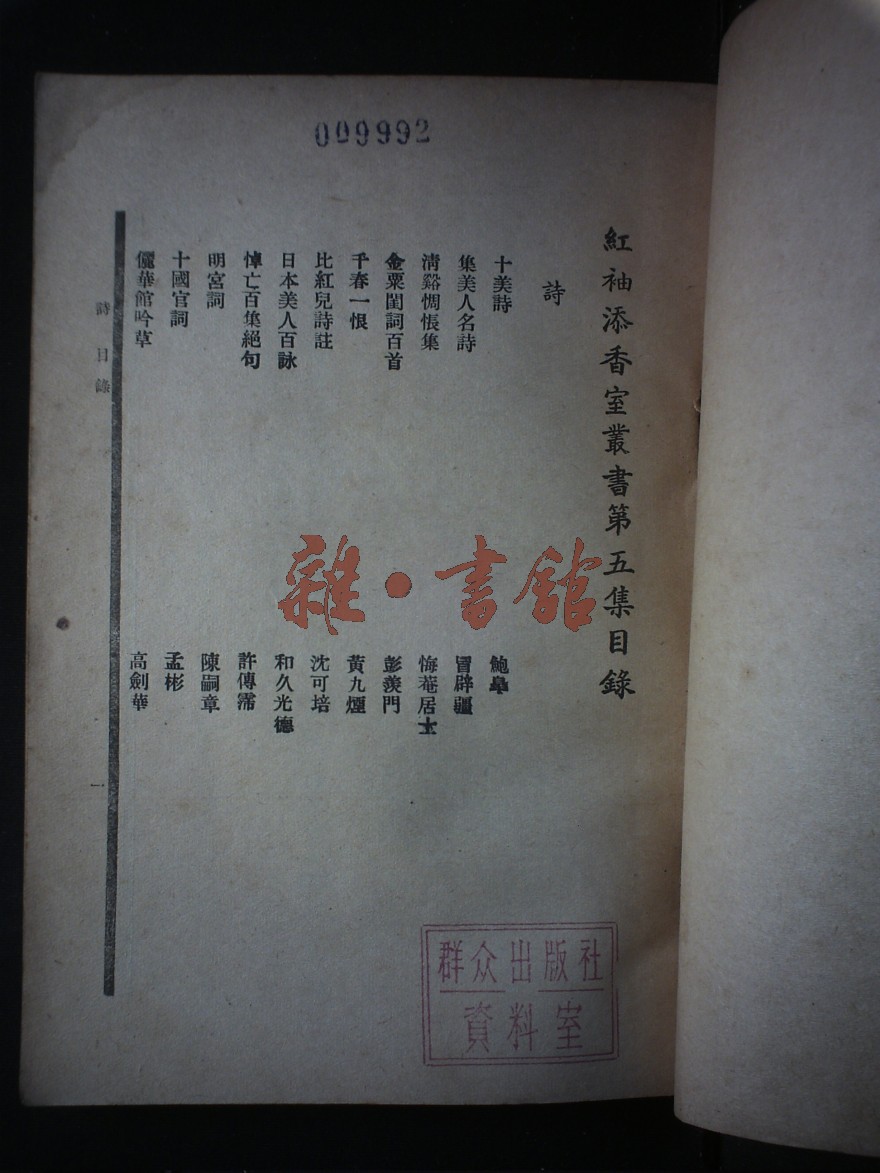 009992
紅袖添香室叢書第五集目錄
詩
十美詩 鮑皋
集美人名詩 冒辟疆
清谿惆悵集 悔菴居士
金粟閨詞百首 彭羨門
千春一恨 黃九煙
比紅兒詩註 沈可培
日本美人百詠 和久光德
悼亡百集絕句 許傳霈
明宮詞 陳嗣章
十國官詞 孟彬
儷華館吟草 高劍華
詩目錄 一
雜·書館
群众出版社
資料室